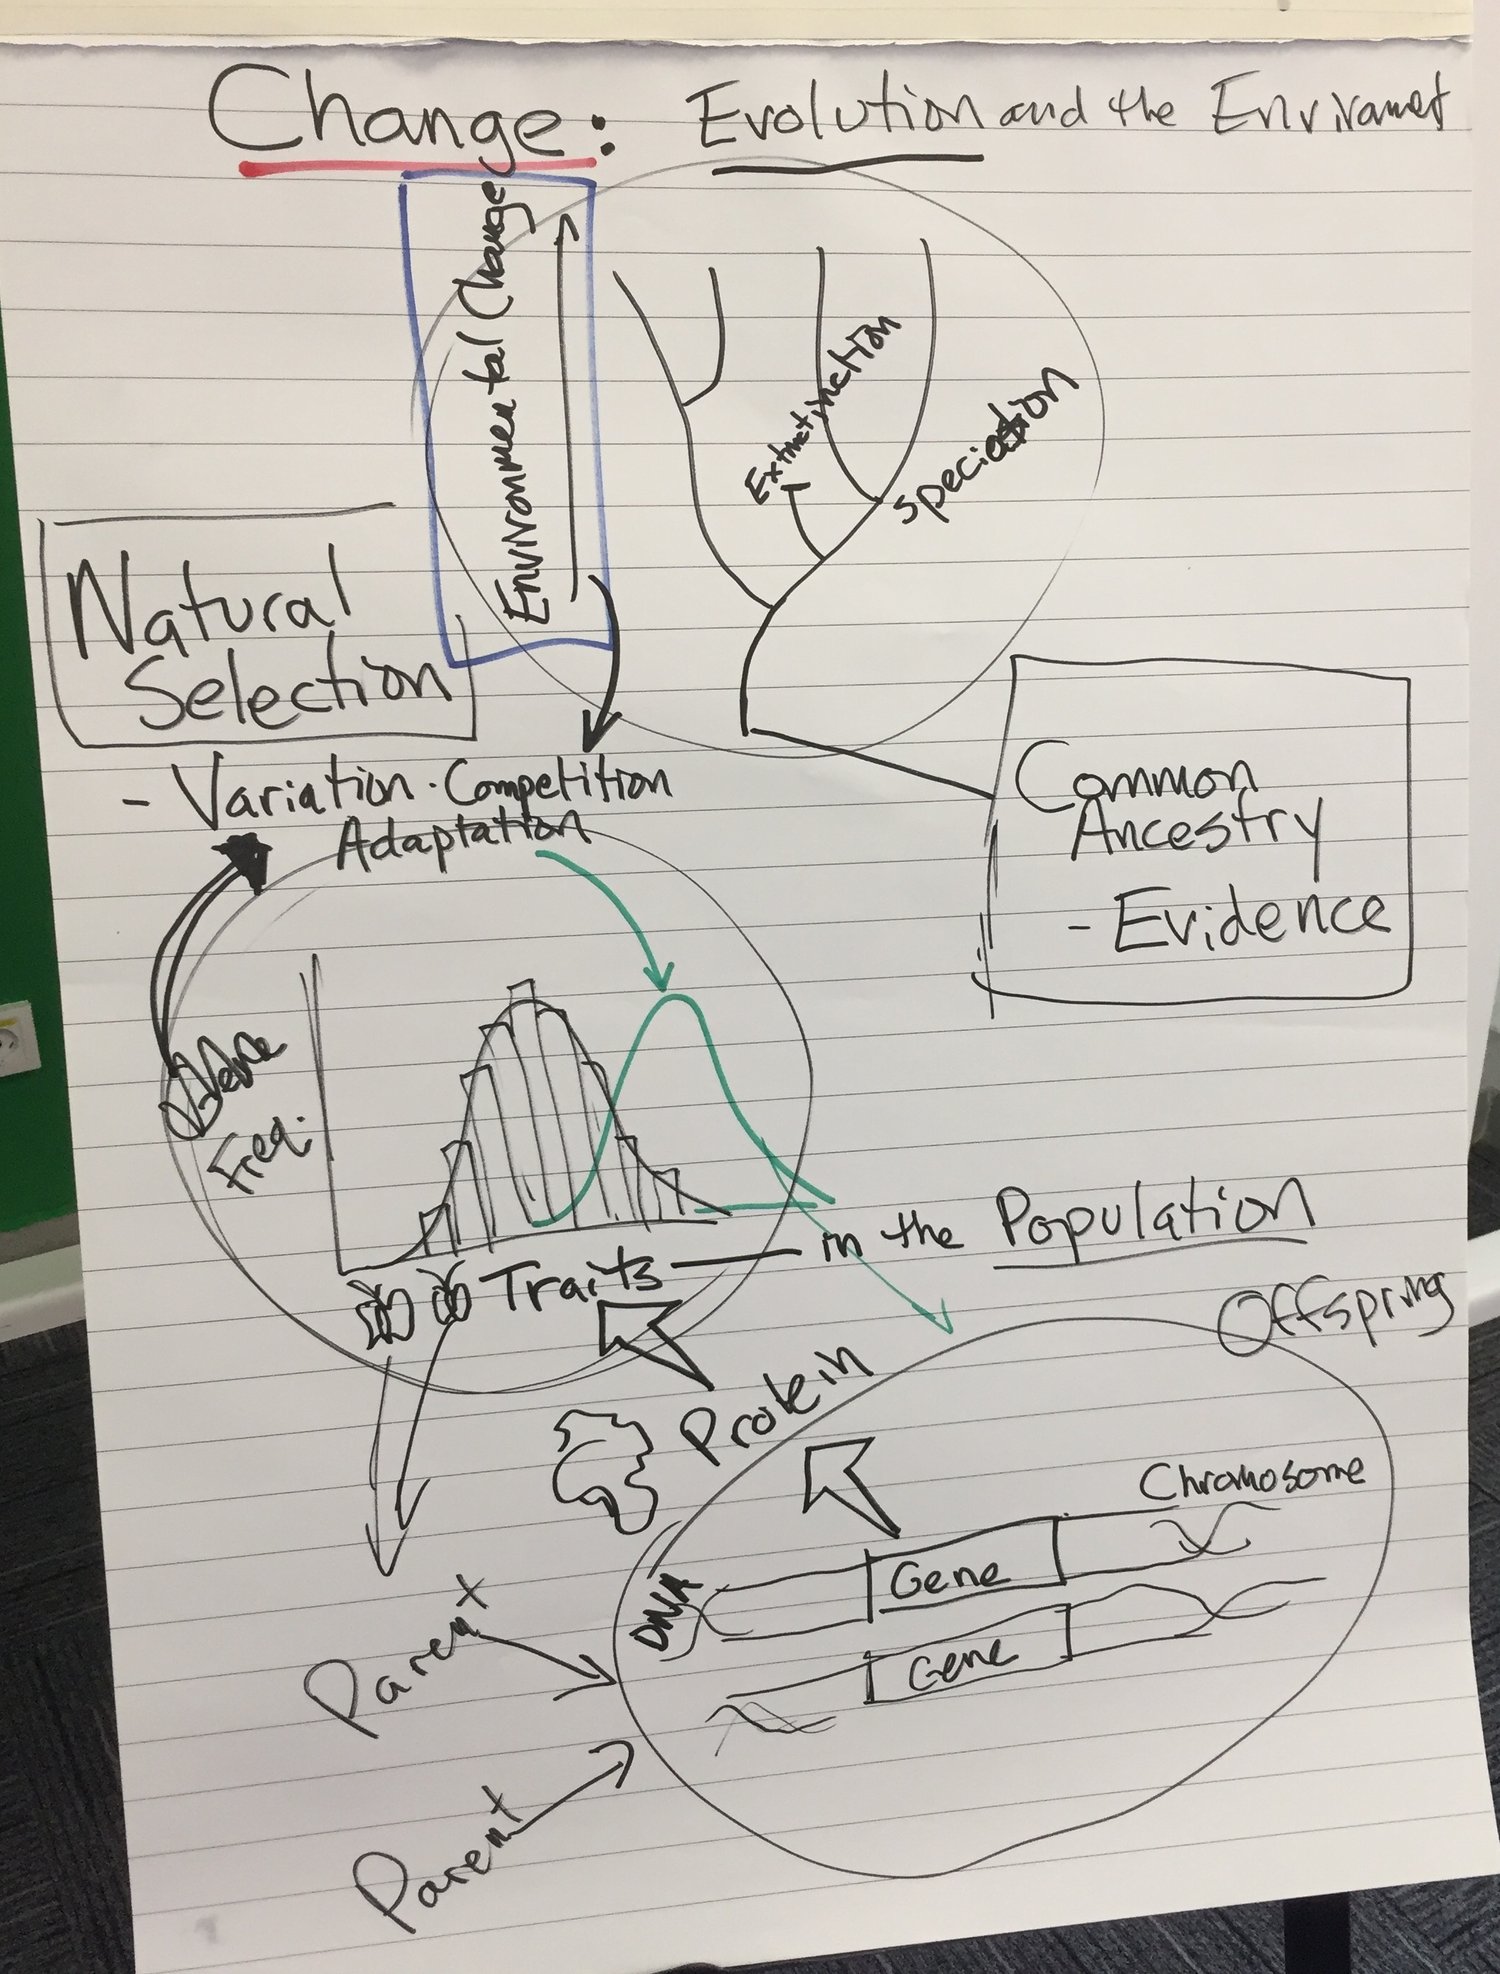 Change: Evolution and the Envirament
Environmental Change
Extinction
Speciation
Natural
Selection
- Variation · Competition
Adaptation
Common
Ancestry
- Evidence
Allele
Freq.
Traits — in the Population
Offspring
Protein
Chromosome
DNA
Gene
Gene
Parent
Parent